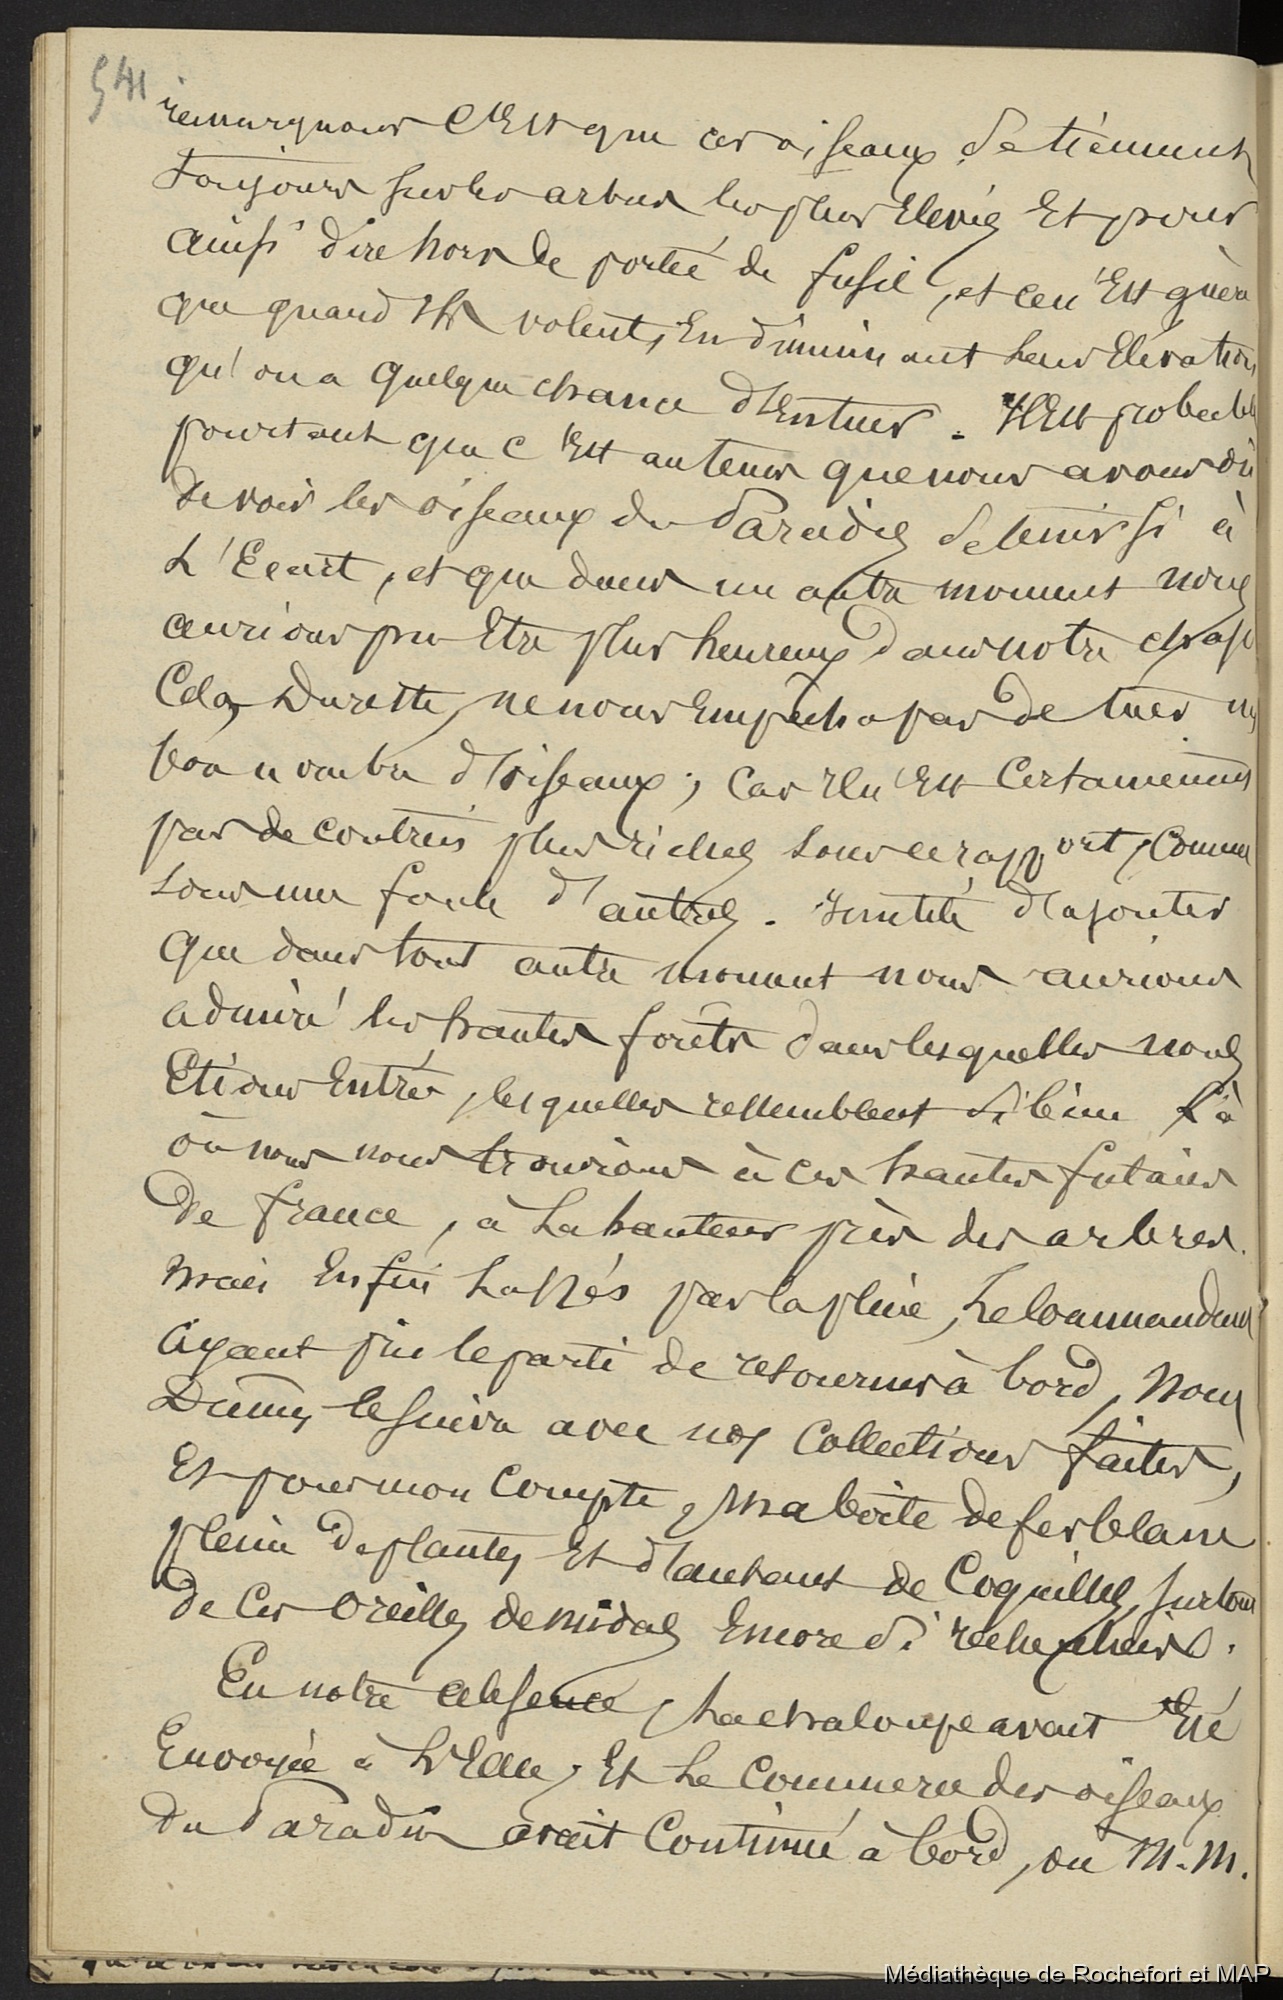 541
remarquons C'Est que ces oiseaux se tiennent
toujours sur les arbres les plus Elevés Et pour
ainsi dire hors de portée de fusil, et ce n'Est guère
que quand Ils volent, En diminuant leur Elévation
qu'on a quelque chance d'En tuer. Il Est probable
pourtant que C'Est au tems que nous avons dû
de voir les oiseaux du Paradis se tenir si à
L'Ecart, et que dans un autre moment nous
aurions pu Etre plus heureux dans notre chasse
Cela, Du reste, ne nous Empêcha pas de tuer un
bon nombre d'oiseaux; Car Il n'Est Certainement
pas de contrées plus riches sous ce rapport, Comme
sous une foule d'autres. Inutile d'ajouter
que dans tout autre moment nous aurions
admiré les hautes forêts dans lesquelles nous
Etions Entrés, lesquelles ressemblent si bien là
où nous nous trouvions à ces hautes futaies
De france, à La hauteur près des arbres.
Mais Enfin Lassés par la pluie, Le Commandant
Ayant pris le parti de retourner à bord, Nous
Dumes le suivre avec nos Collections faites,
Et pour mon Compte, Ma boîte de fer blanc
pleine de plantes Et d'autant de Coquilles, surtout
de Ces Oreilles de midas Encore si recherchées.
En notre absence, La chaloupe avait Eté
Envoyée à L'Eau, Et Le Commerce des oiseaux
du Paradis avait Continué à bord, ou M.M.
Médiathèque de Rochefort et MAP